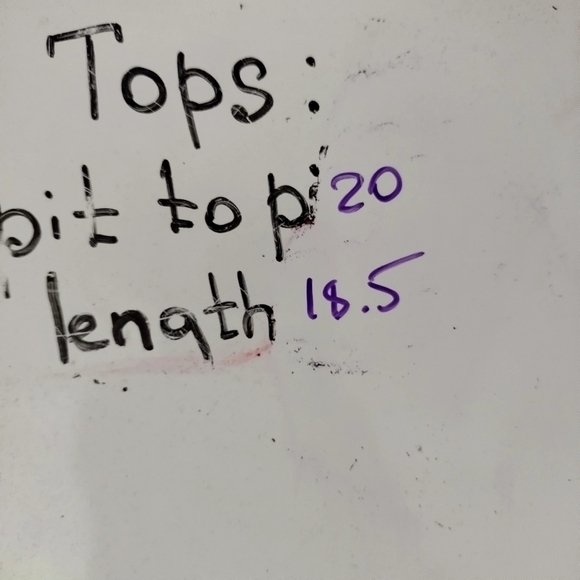 Tops:
pit to pi 20
length 18.5